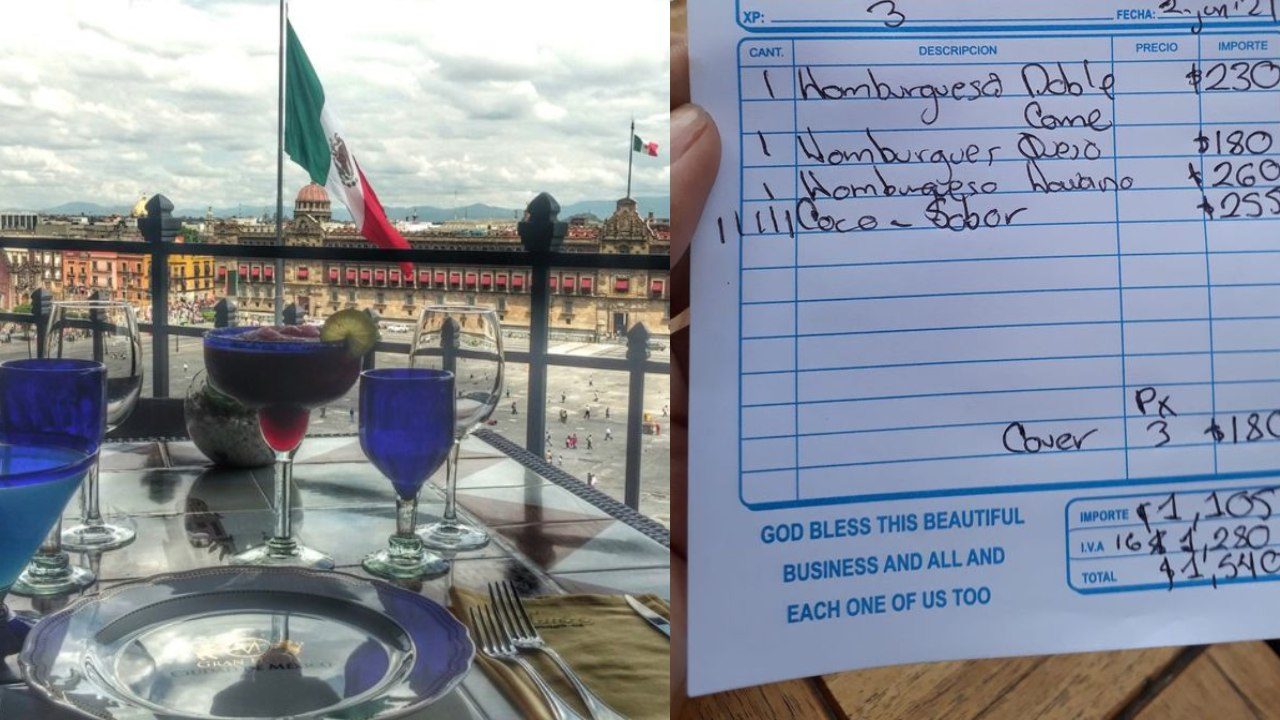 GRAN
CIUDAD DE MÉXICO
XP: 3 FECHA: 2 jun '21
CANT. DESCRIPCION PRECIO IMPORTE
1 Hamburguesa Doble $230
Carne
1 Hamburgues Queso $180
1 Hamburguesa Hawaiana $260
1 1 1 1 1 Coca - Sabor $255
PX
Cover 3 $180
GOD BLESS THIS BEAUTIFUL
BUSINESS AND ALL AND
EACH ONE OF US TOO
IMPORTE $1,105
I.V.A 16 $ 1,280
TOTAL $1,540